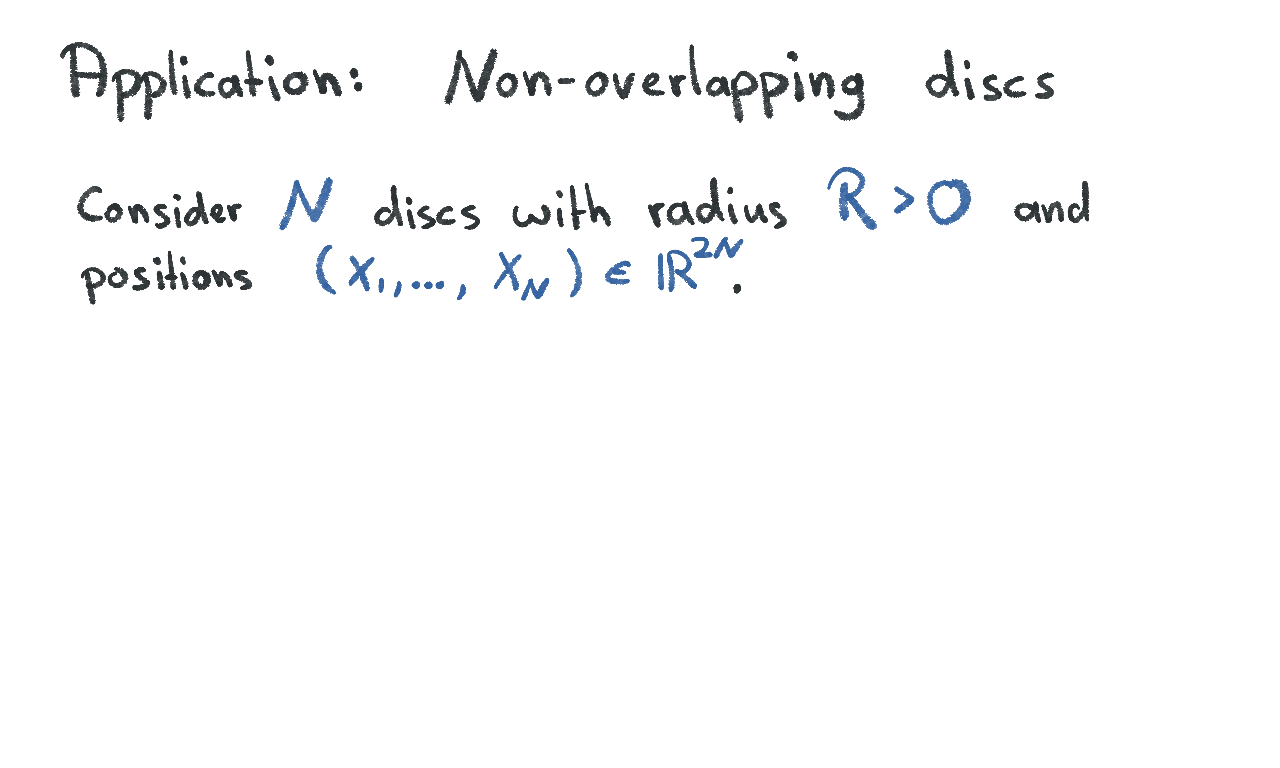 Application: Non-overlapping discs
Consider N discs with radius R > 0 and
positions (X₁,..., X_N) ∈ ℝ²ᴺ.